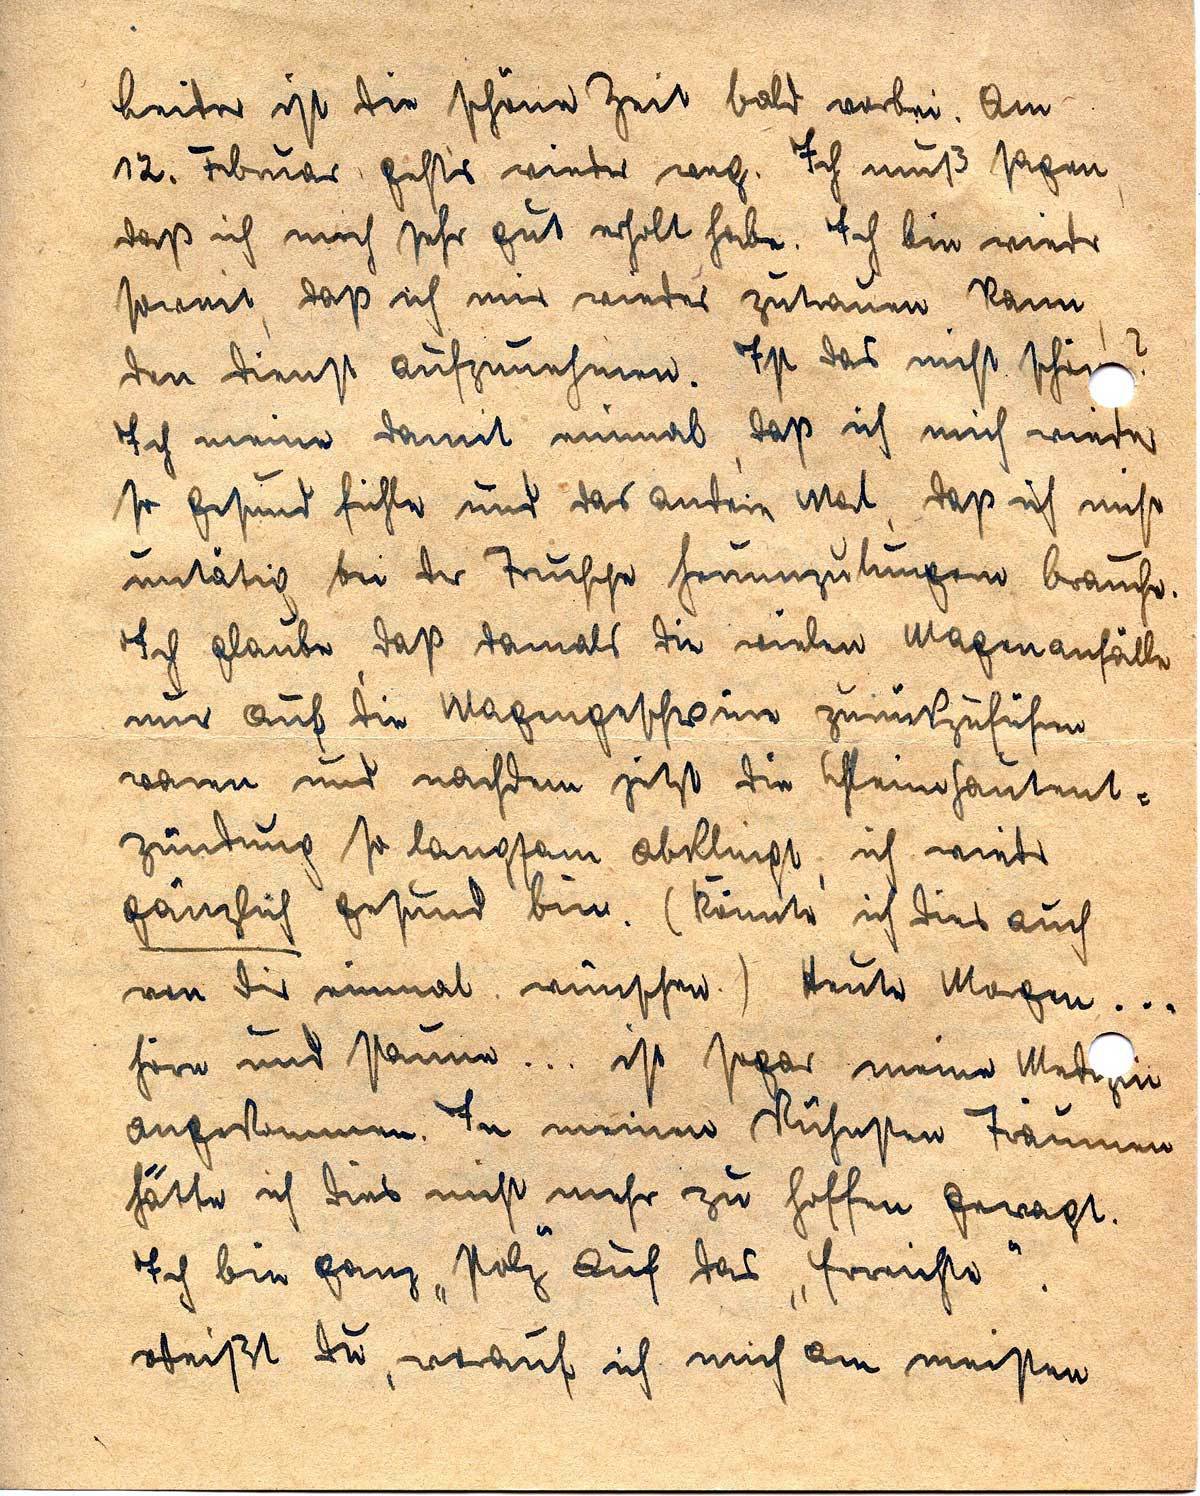 Leider ist die schöne Zeit bald vorbei. Am
12. Februar geht's wieder weg. Ich muß sagen,
daß ich mich sehr gut erholt habe. Ich bin wieder
soweit, daß ich mir wieder zutrauen kann,
den Dienst aufzunehmen. Ist das nicht schön?
Ich meine damit einmal, daß ich mich wieder
so gesund fühle und das andere Mal, daß ich nicht
untätig bei der Truppe herumzulungern brauche.
Ich glaube, daß damals die vielen Magenanfälle
nur auf die Magengeschwüre zurückzuführen
waren und nachdem jetzt die Schleimhautent=
zündung so langsam abklingt, ich wieder
gänzlich gesund bin. (Könnte ich dies auch
von Dir einmal wünschen.) Heute Morgen ...
höre und staune ... ist sogar meine Medizin
angekommen. In meinen kühnsten Träumen
hätte ich dies nicht mehr zu hoffen gewagt.
Ich bin ganz „stolz“ auf das „Erreichte“.
Weißt Du, worauf ich mich am meisten